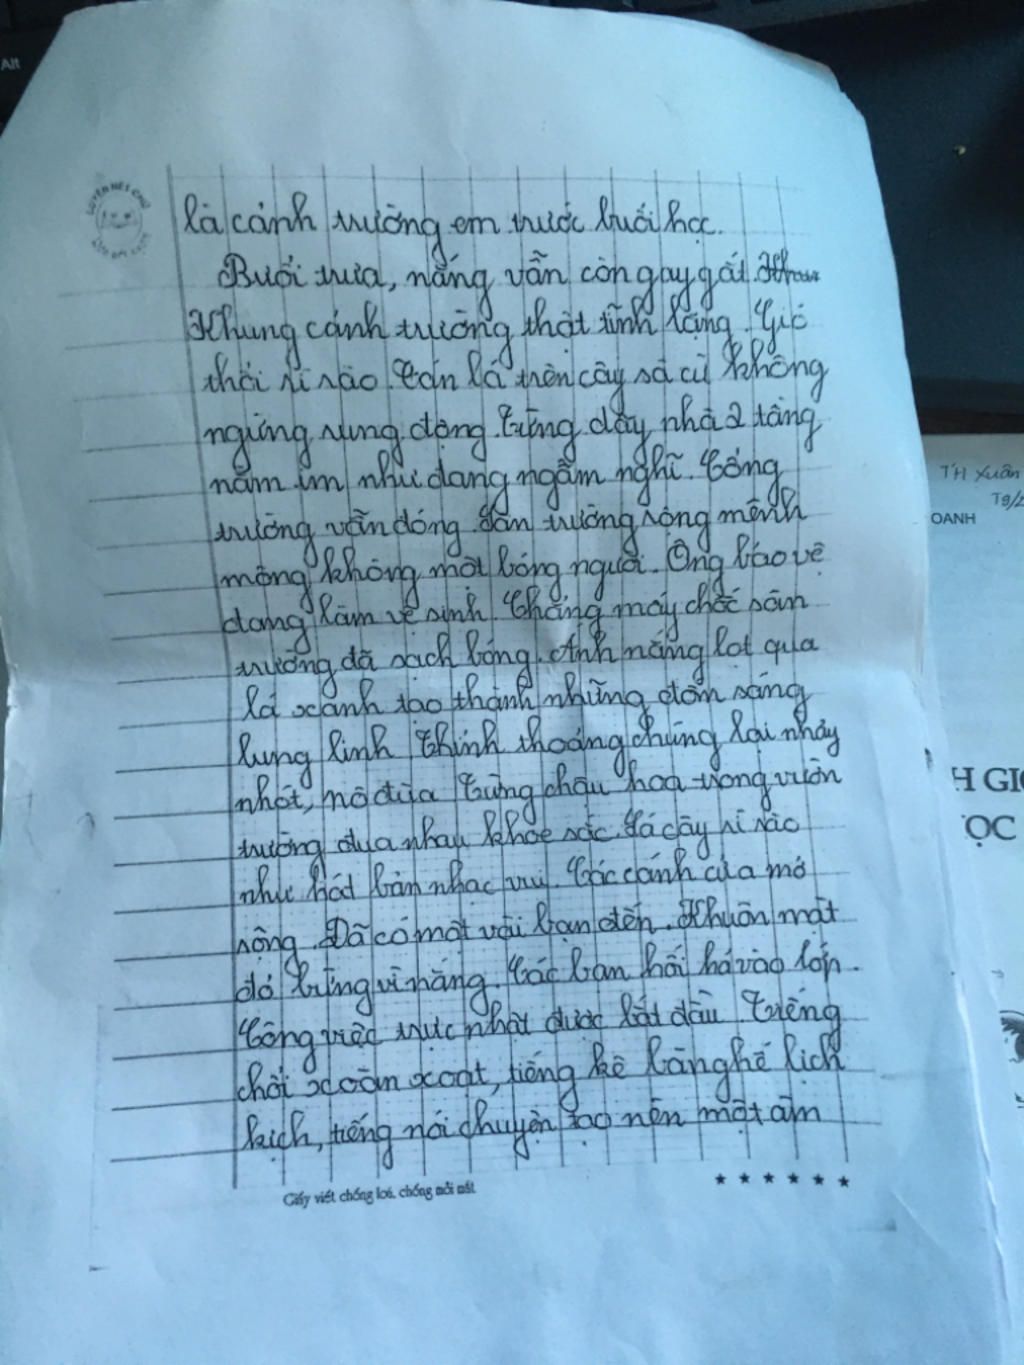 Alt
LUYỆN NÉT CHỮ
là cảnh trường em trước buổi học.
Buổi trưa, nắng vẫn còn gay gắt.
Khung cảnh trường thật tĩnh lặng. Gió
thổi rì rào. Tán lá trên cây sà cừ không
ngừng rung động. Từng dãy nhà 2 tầng
nằm im như đang ngẫm nghĩ. Cổng
trường vẫn đóng. Sân trường rộng mênh
mông không một bóng người. Ông bảo vệ
đang làm vệ sinh. Chẳng mấy chốc sân
trường đã sạch bóng. Ánh nắng lọt qua
lá xanh tạo thành những đốm sáng
lung linh. Thỉnh thoảng chúng lại nhảy
nhót, nô đùa. Từng chậu hoa trong vườn
trường đua nhau khoe sắc. Lá cây rì rào
như hát bản nhạc vui. Các cánh cửa mở
rộng. Đã có một vài bạn đến. Khuôn mặt
đỏ bừng vì nắng. Các bạn hối hả vào lớp.
Công việc trực nhật được bắt đầu. Tiếng
chổi xoàn xoạt, tiếng kê bàn ghế lịch
kịch, tiếng nói chuyện tạo nên một âm
Giấy viết chống loá, chống mỏi mắt
★ ★ ★ ★ ★ ★
TH Xuân
T9/2
OANH
H GI
ỌC